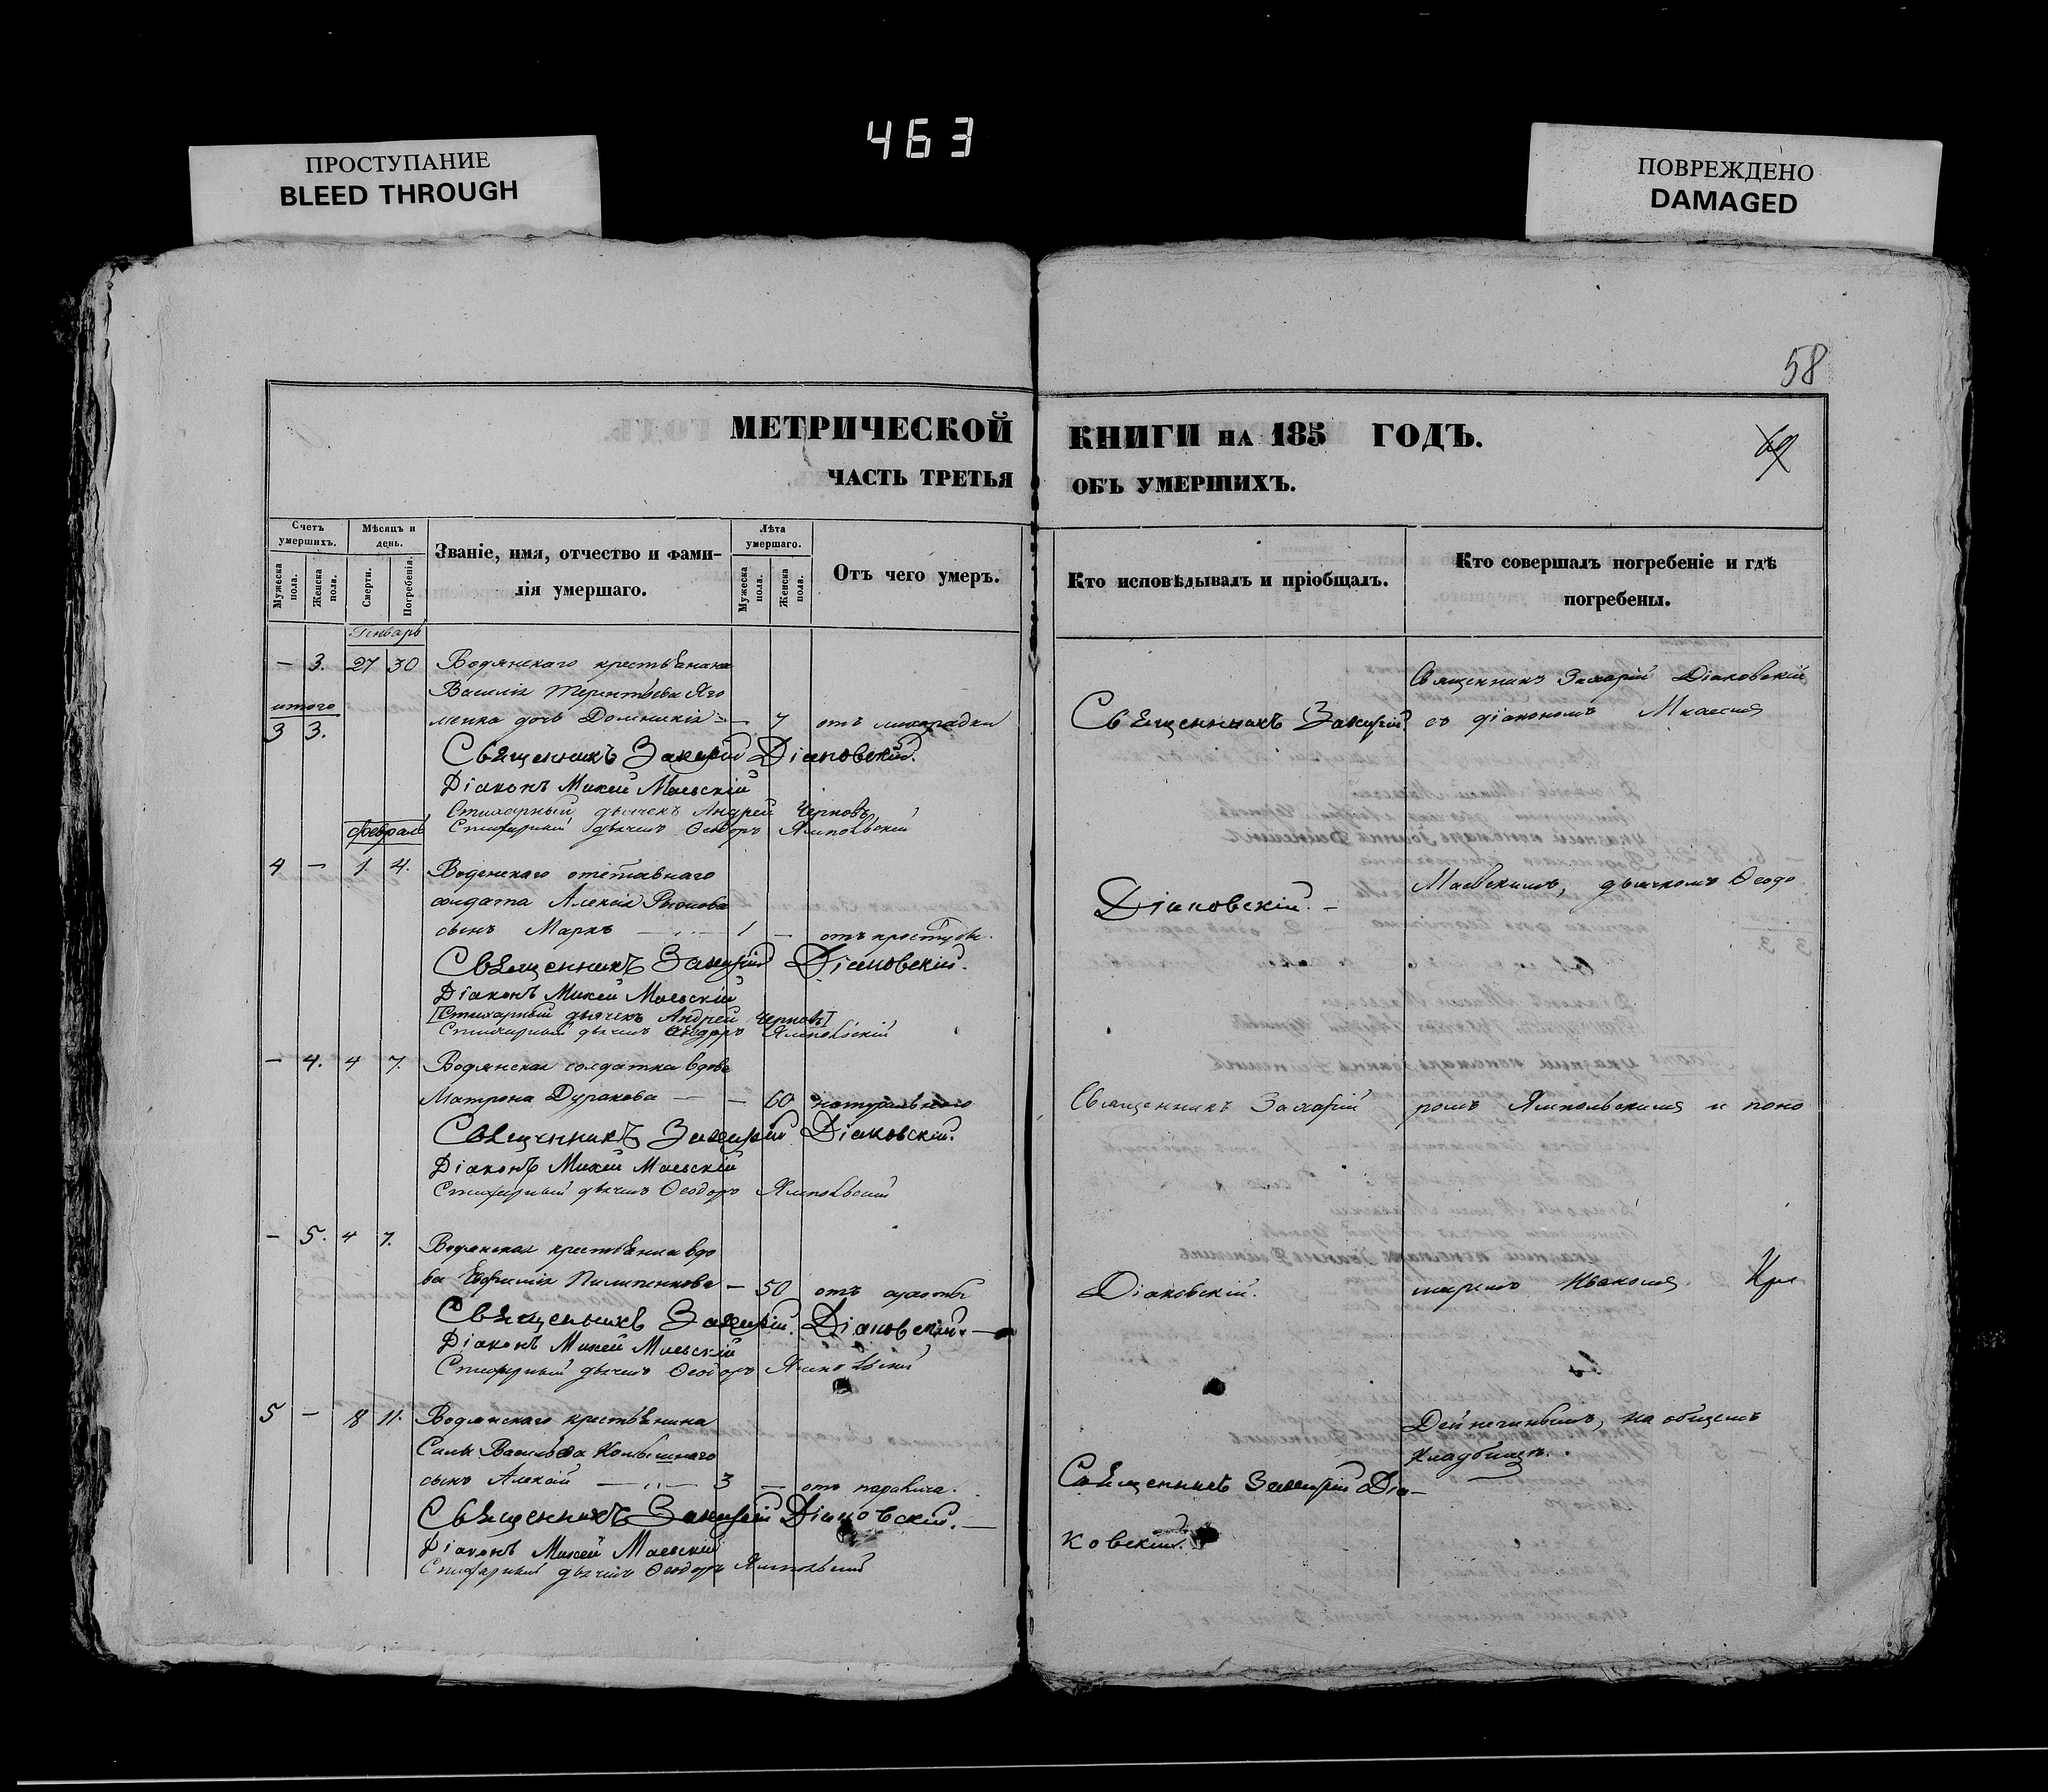 463
ПРОСТУПАНИЕ
BLEED THROUGH
ПОВРЕЖДЕНО
DAMAGED
58
МЕТРИЧЕСКОЙ КНИГИ НА 185 ГОДЪ.
ЧАСТЬ ТРЕТЬЯ ОБЪ УМЕРШИХЪ.
Счетъ умершихъ.
Мужеска пола.
Женска пола.
Мѣсяцъ и день.
Смерти.
Погребенія.
Званіе, имя, отчество и фами-
лія умершаго.
Лѣта умершаго.
Мужеска пола.
Женска пола.
Отъ чего умеръ.
Кто исповѣдывалъ и пріобщалъ.
Кто совершалъ погребеніе и гдѣ
погребены.
Генварь
— 3. 27 30 Водянскаго крестьянина
Василія Терентьева Яго
итого
менка дочь Домникія — 7 отъ лихорадки
3 3.
Священникъ Захарій Діаковскій.
Діаконъ Михей Маевскій
Стихарный дьячекъ Андрей Черновъ
Стихарный дьячекъ Ѳеодоръ Ямпольскій
февраль
4 — 1. 4. Водянскаго отставнаго
солдата Алексія
сынъ Маркъ — 1 — отъ простуды.
Священникъ Захарій Діаковскій.
Діаконъ Михей Маевскій
[Стихарный дьячекъ Андрей Черновъ]
Стихарный дьячекъ Ѳеодоръ Ямпольскій
— 4. 4 7. Водянская солдатка вдова
Матрона Дуракова — — 60 натурального
Священникъ Захарій Діаковскій.
Діаконъ Михей Маевскій
Стихарный дьячекъ Ѳеодоръ Ямпольскій
— 5. 4 7. Водянская крестьянка вдо
ва Евфимія Пилипенкова — 50 отъ
Священникъ Захарій Діаковскій. —
Діаконъ Михей Маевскій
Стихарный дьячекъ Ѳеодоръ Ямпольскій
5 — 8 11. Водянскаго крестьянина
Силы Васильева
сынъ Алексій — 3 — отъ паралича.
Священникъ Захарій Діаковскій. —
Діаконъ Михей Маевскій
Стихарный дьячекъ Ѳеодоръ Ямпольскій
Священникъ Захарій
Діаковскій. —
Священникъ Захарій
Діаковскій.
Священникъ Захарій Діа—
ковскій.
Священникъ Захарій Діаковскій
съ діакономъ Михеемъ
Маевскимъ, дьячкомъ Ѳеодо
ромъ Ямпольскимъ и поно
маремъ Иваномъ
Дейнечинымъ, на общемъ
кладбищѣ.